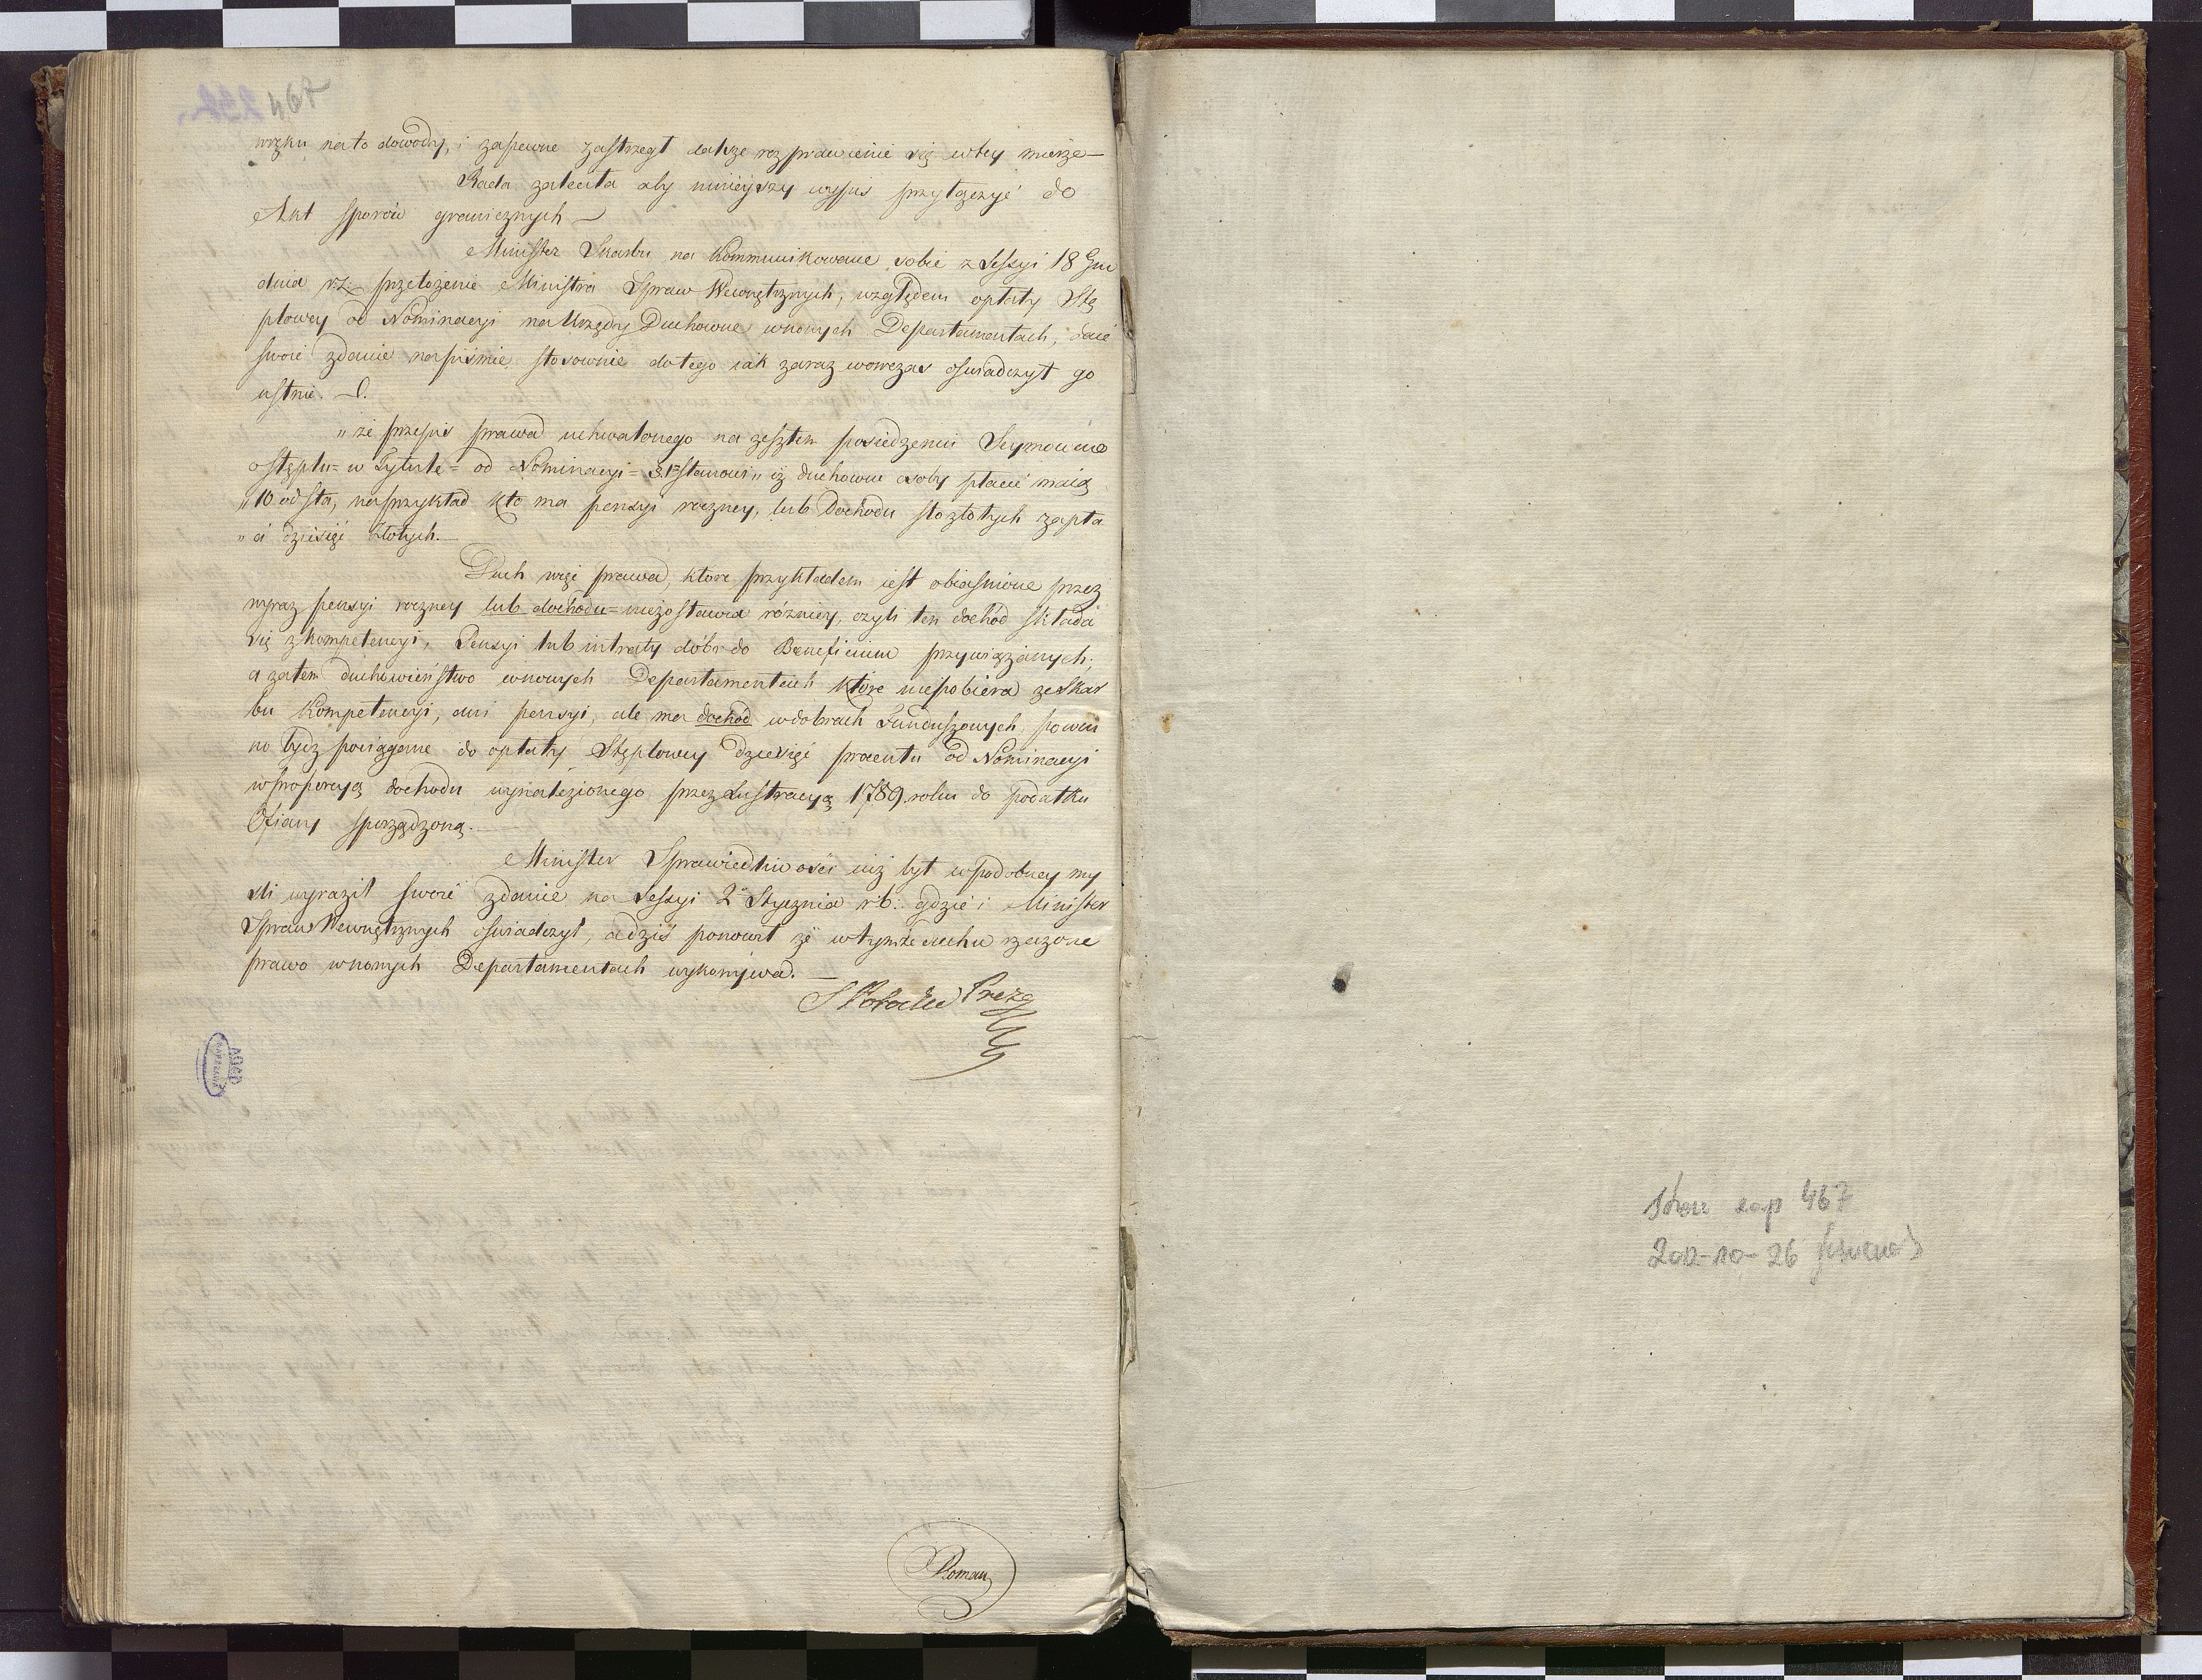 467
ręku na to dowody, i zapewne zastrzegł dalsze rozprawienie się w tey mierze —
Rada zaleciła aby ninieyszy wypis przyłączyć do
Akt sporów granicznych —
Minister Skarbu na kommunikowane sobie z Sessyi 18 Gru
dnia r.z. przełożenie Ministra Spraw Wewnętrznych, względem opłaty Stę
plowey od Nominacyi na Urzędy Duchowne w nowych Departamentach, dał
swoie zdanie na piśmie stosownie do tego iak zaraz wowczas oświadczył go
ustnie.
„ że przepis prawa uchwalonego na zeszłem posiedzeniu Seymowem
o stęplu = w Tytule = od Nominacyi = stanowi „ iż duchowne osoby płacić maią
„ 10 od sta, naprzykład kto ma pensyi roczney, lub Dochodu sto złotych zapła
„ ci dziesięć Złotych. —
Duch więc prawa, ktore przykładem iest obiaśnione przez
wyraz pensyi roczney lub dochodu = niezostawia różnicy, czyli ten dochód składa
się z kompetencyi, Pensyi lub intraty dóbr do Beneficium przywiązanych;
a zatem duchowieństwo w nowych Departamentach które niepobiera ze Skar
bu Kompetencyi, ani pensyi, ale ma dochod w dobrach Funduszowych, powin
no bydz pociągane do opłaty Stęplowey dziesięć procentu od Nominacyi
w proporcyą dochodu wynalezionego przez Lustracyą 1789 roku do podatku
Ofiary sporządzoną. —
Minister Sprawiedliwości iuż był w podobney my
śli wyraził swoie zdanie na Sessyi 2 Stycznia r. b. gdzie i Minister
Spraw Wewnętrznych oświadczył, a dziś ponowił że w tymże duchu rzeczone
prawo w nowych Departamentach wykonywa. —
S Potocki Prezes
AGAD
WARSZAWA
Roman
Stron zap 467
2012-10-26